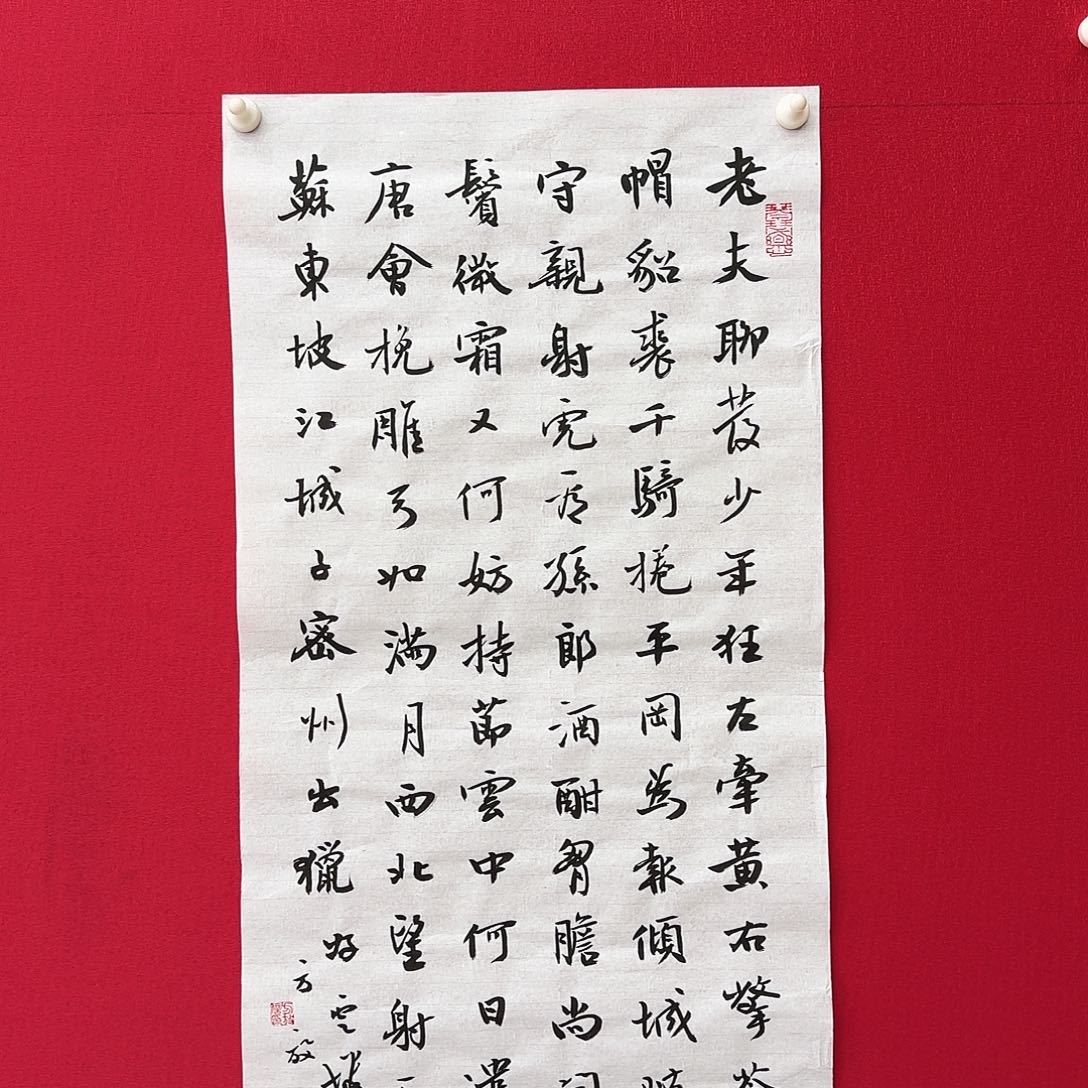 老夫聊發少年狂左牽黃右擎蒼
帽貂裘千騎捲平岡為報傾城隨
守親射虎看孫郎酒酣胷膽尚
鬢微霜又何妨持節雲中何日遣
唐會挽雕弓如滿月西北望射
蘇東坡江城子密州出獵
方